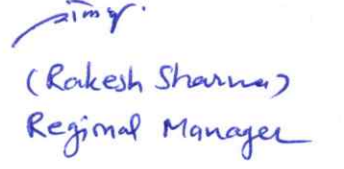 (Rakesh Sharma)
Regional Manager